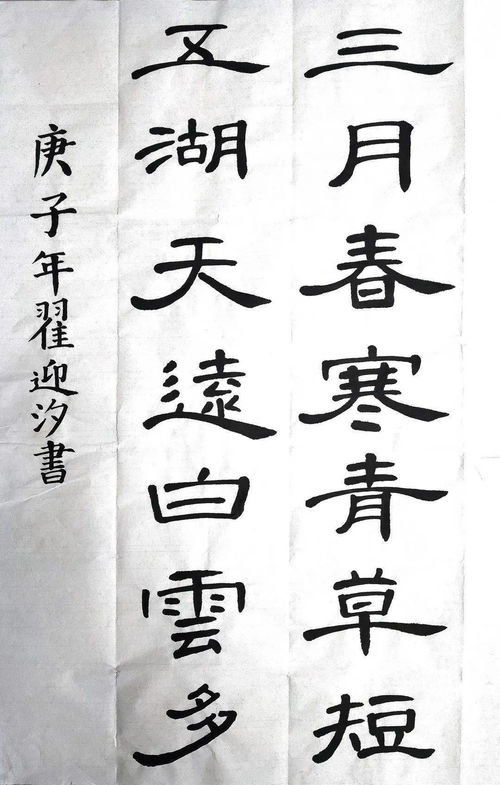 三月春寒青草短
五湖天遠白雲多
庚子年翟迎汐書